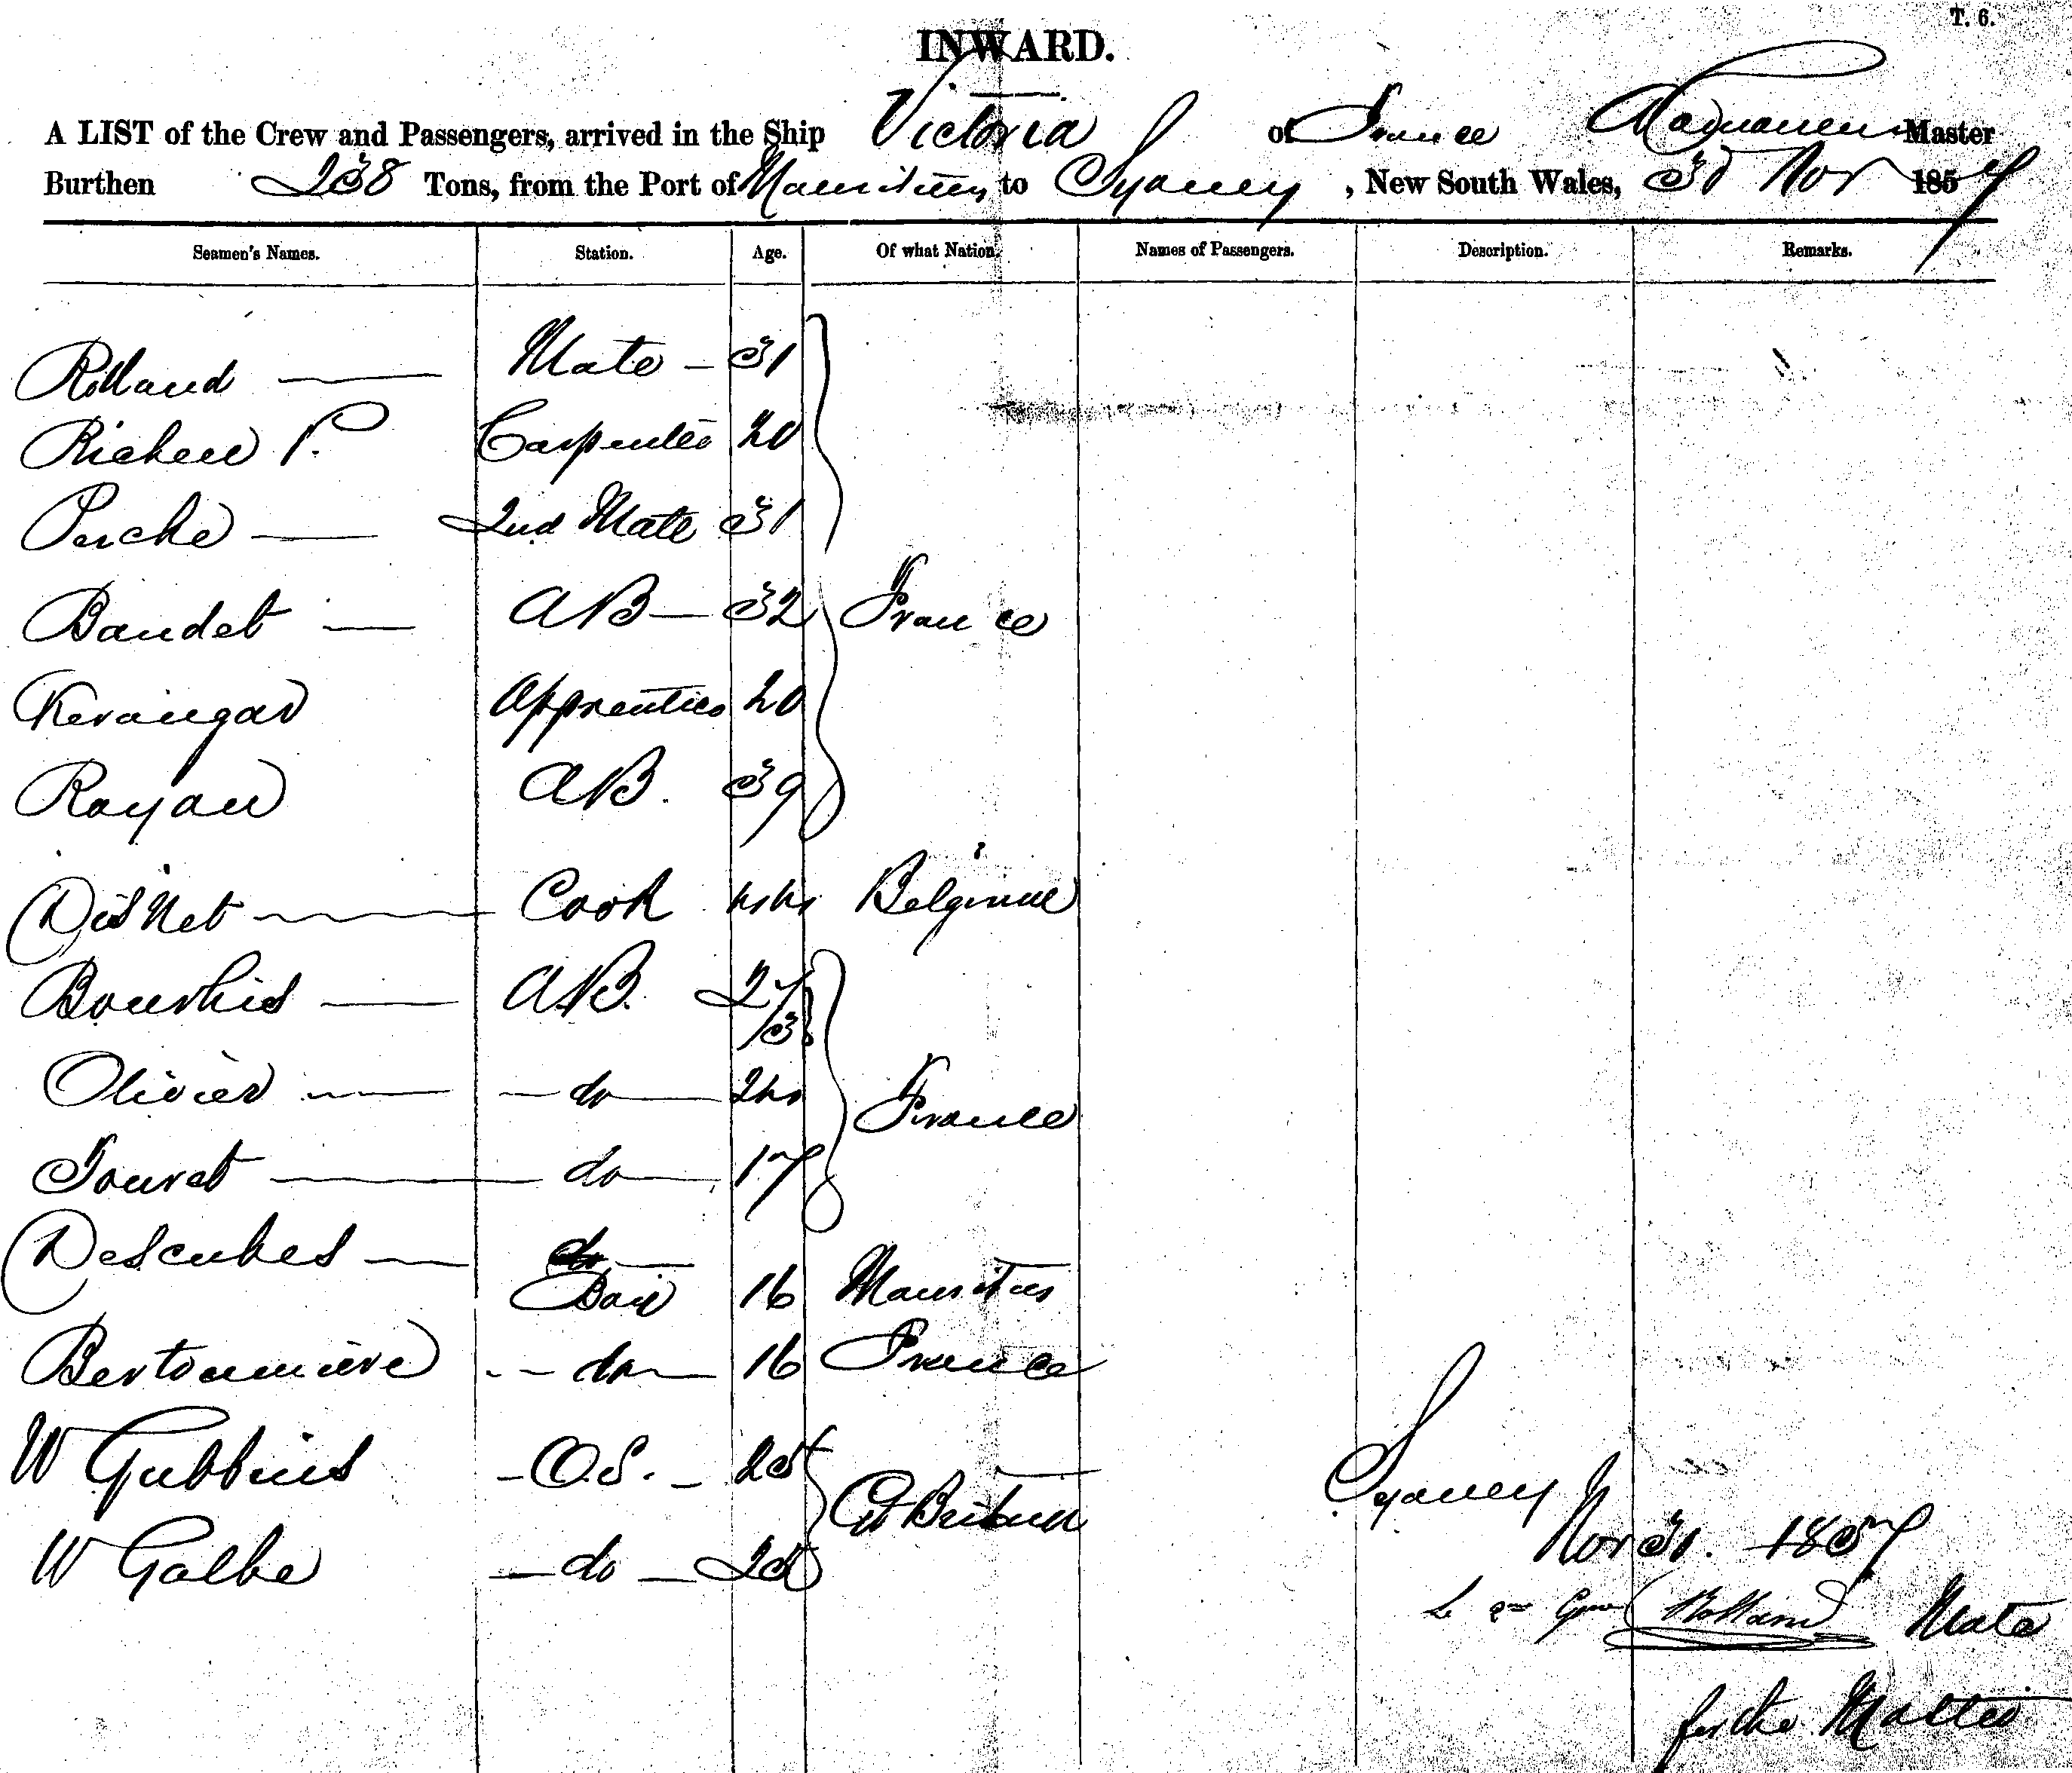 T. 6.
INWARD.
A LIST of the Crew and Passengers, arrived in the Ship Victoria of France Master
Burthen 238 Tons, from the Port of Mauritius to Sydney, New South Wales, 30 Nov 1857
Seamen's Names. Station. Age. Of what Nation. Names of Passengers. Description. Remarks.
Rolland Mate 31
Richew P. Carpenter 20
Perche 2nd Mate 31
Baudet AB 32 France
Kerangar Apprentice 20
Royau AB. 39
Disnet Cook 44 Belgium
Bourhis AB. 27
Olivier do 24 France
Touret do 17
Descubes do
Boy 16 Mauritius
Bertoumiere do 16 France
W Gubbins O.S. 25
Gt Britain
W Galbe do 25
Sydney
Nov 30. 1857
Le 2me Rolland Mate
for the Master